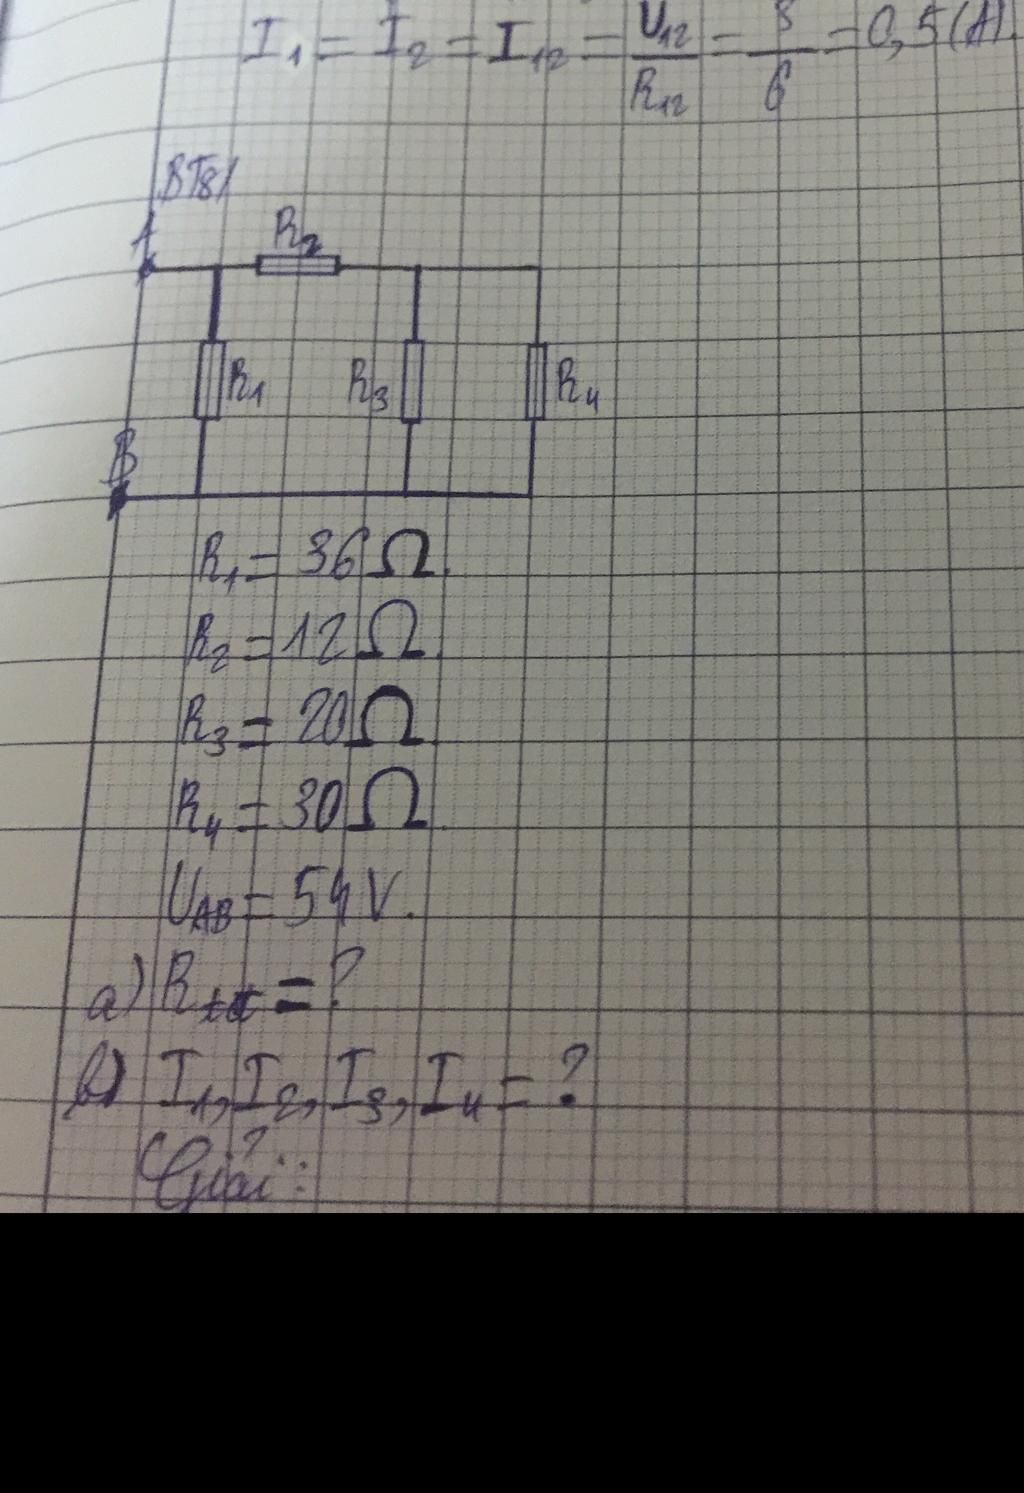 I₁ = I₂ = I₁₂ = U₁₂/R₁₂ = 3/6 = 0,5(A).
BT8/
A
R₂
R₁
R₃
R₄
B
R₁ = 36 Ω.
R₂ = 12 Ω.
R₃ = 20 Ω.
R₄ = 30 Ω.
U_AB = 54 V.
a) R_tđ = ?
b) I₁, I₂, I₃, I₄ = ?
Giải: